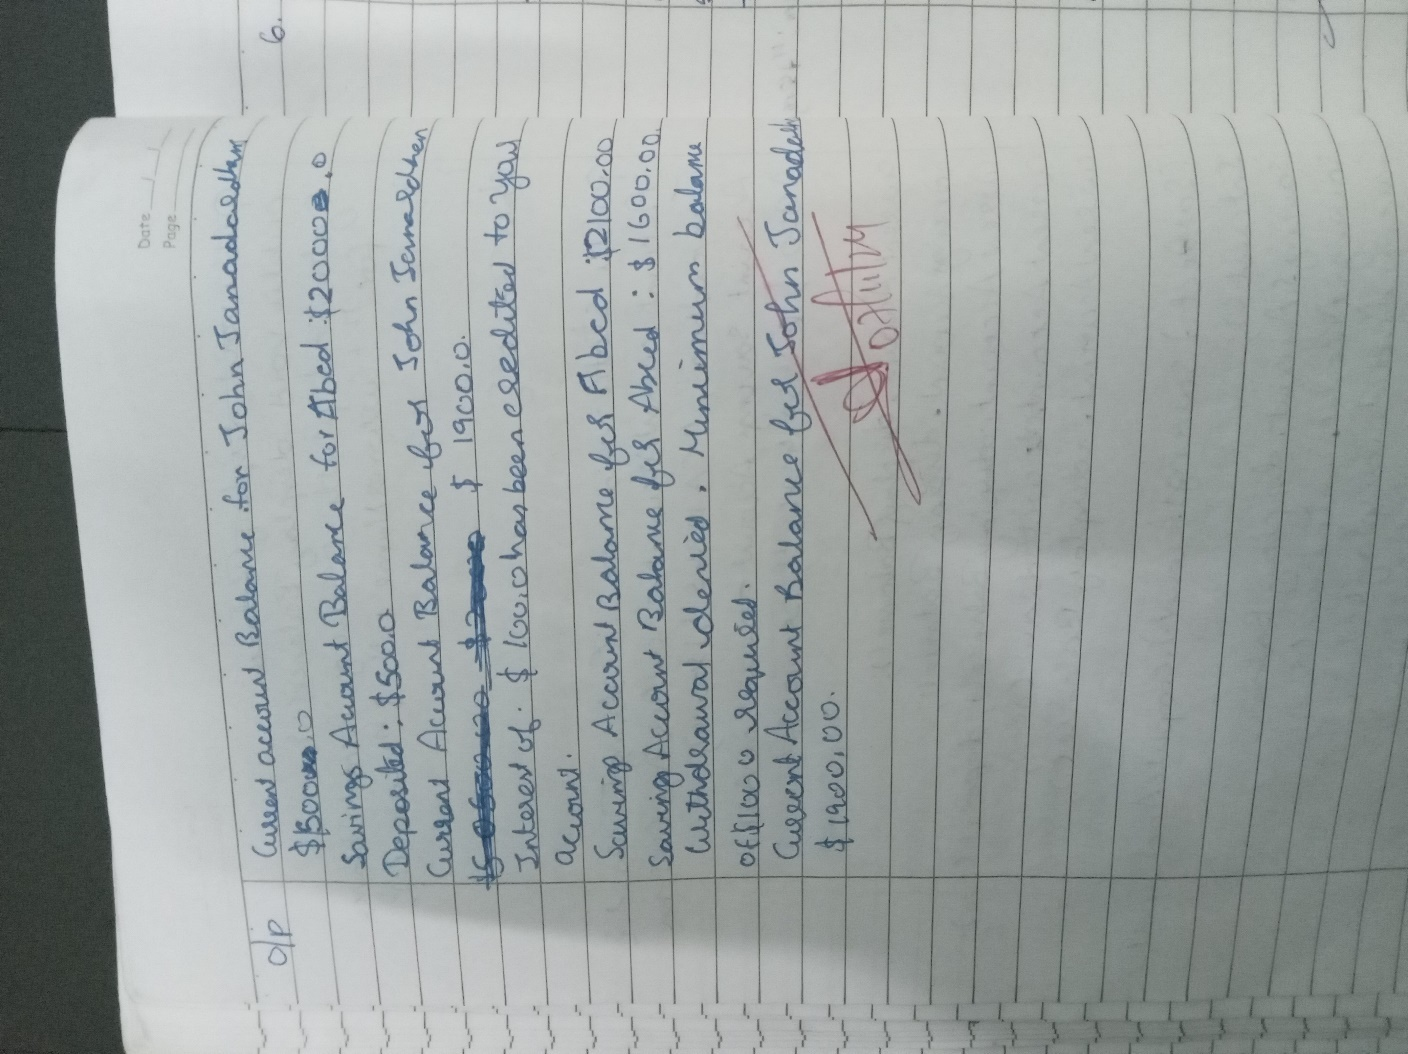 Date
Page
6.
O/P
Current account Balance for John Janadaldhan
$1500.0
Savings Account Balance for Abcd : $2000.0
Deposited : $500.0
Current Account Balance for John
$ 1900.0.
Interest of. $ 100.0 has been credited to your
account.
Saving Account Balance for Abcd : $2100.00
Saving Account Balance for Abcd : $ 1600.00.
Withdrawal denied. Minimum balance
of $1000 required.
Current Account Balance for John
$ 1900.00.